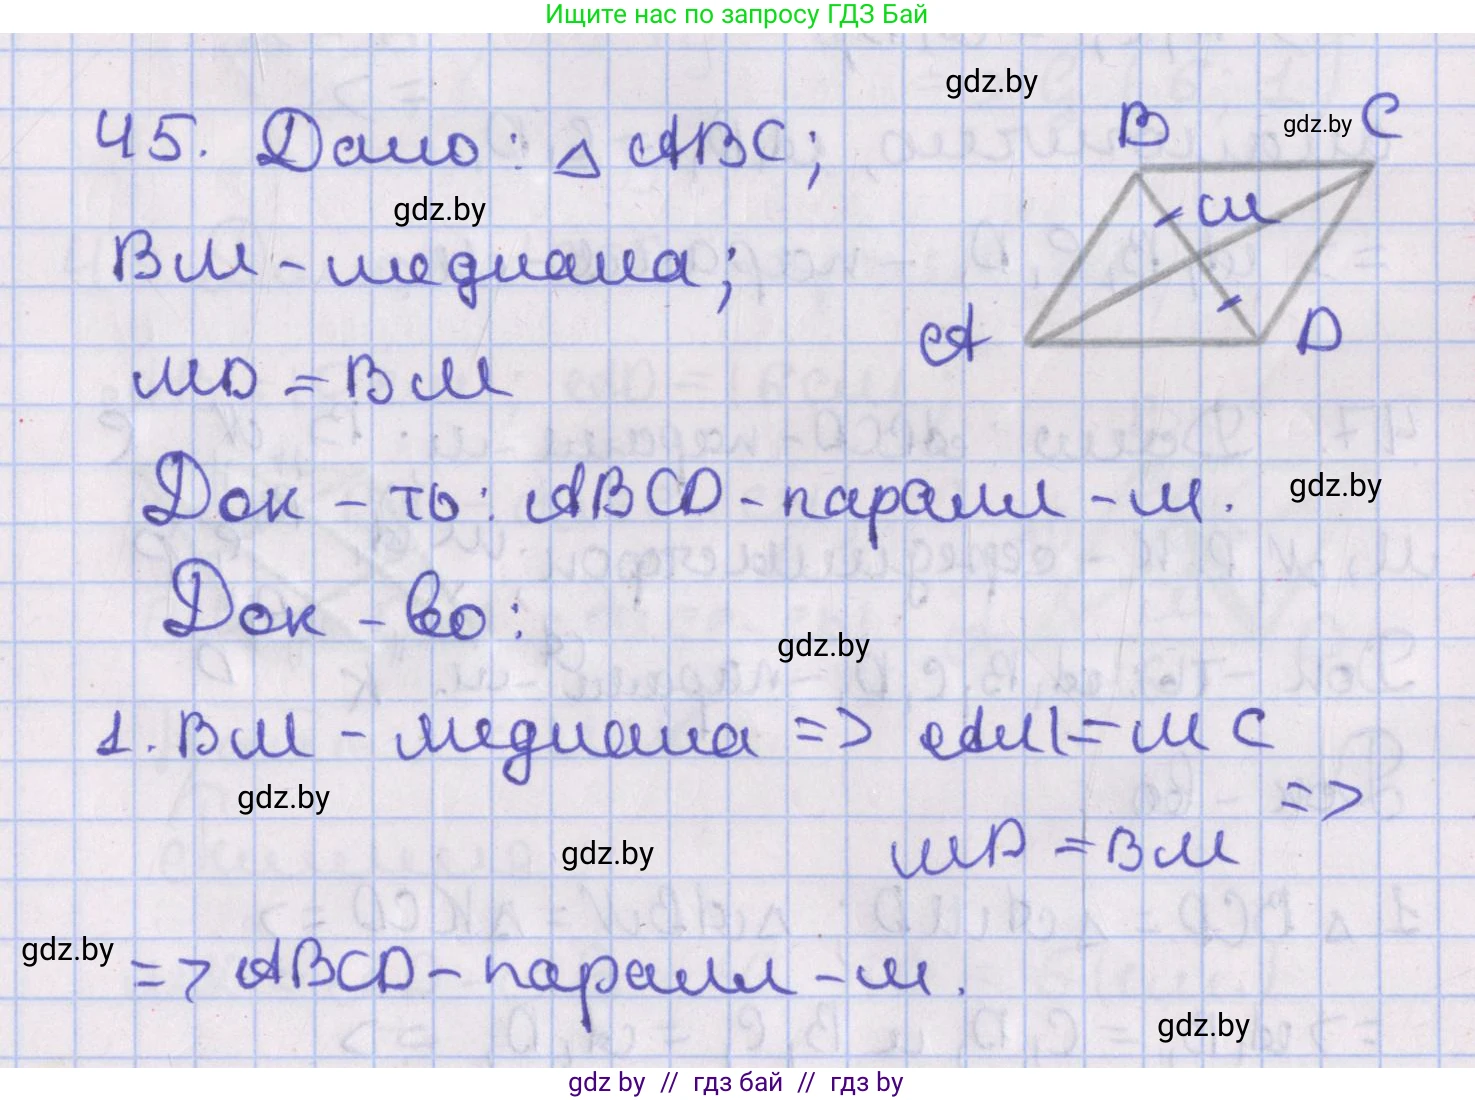 Ищите нас по запросу ГДЗ Бай
gdz.by
45. Дано: △ ABC;
B
gdz.by
C
gdz.by
M
BM - медиана;
A
D
MD = BM
Док - ть: ABCD - паралл - м.
gdz.by
Док - во:
gdz.by
1. BM - медиана => AM = MC
gdz.by
=>
MD = BM
gdz.by
gdz.by
=> ABCD - паралл - м.
gdz.by
gdz by // гдз бай // гдз by